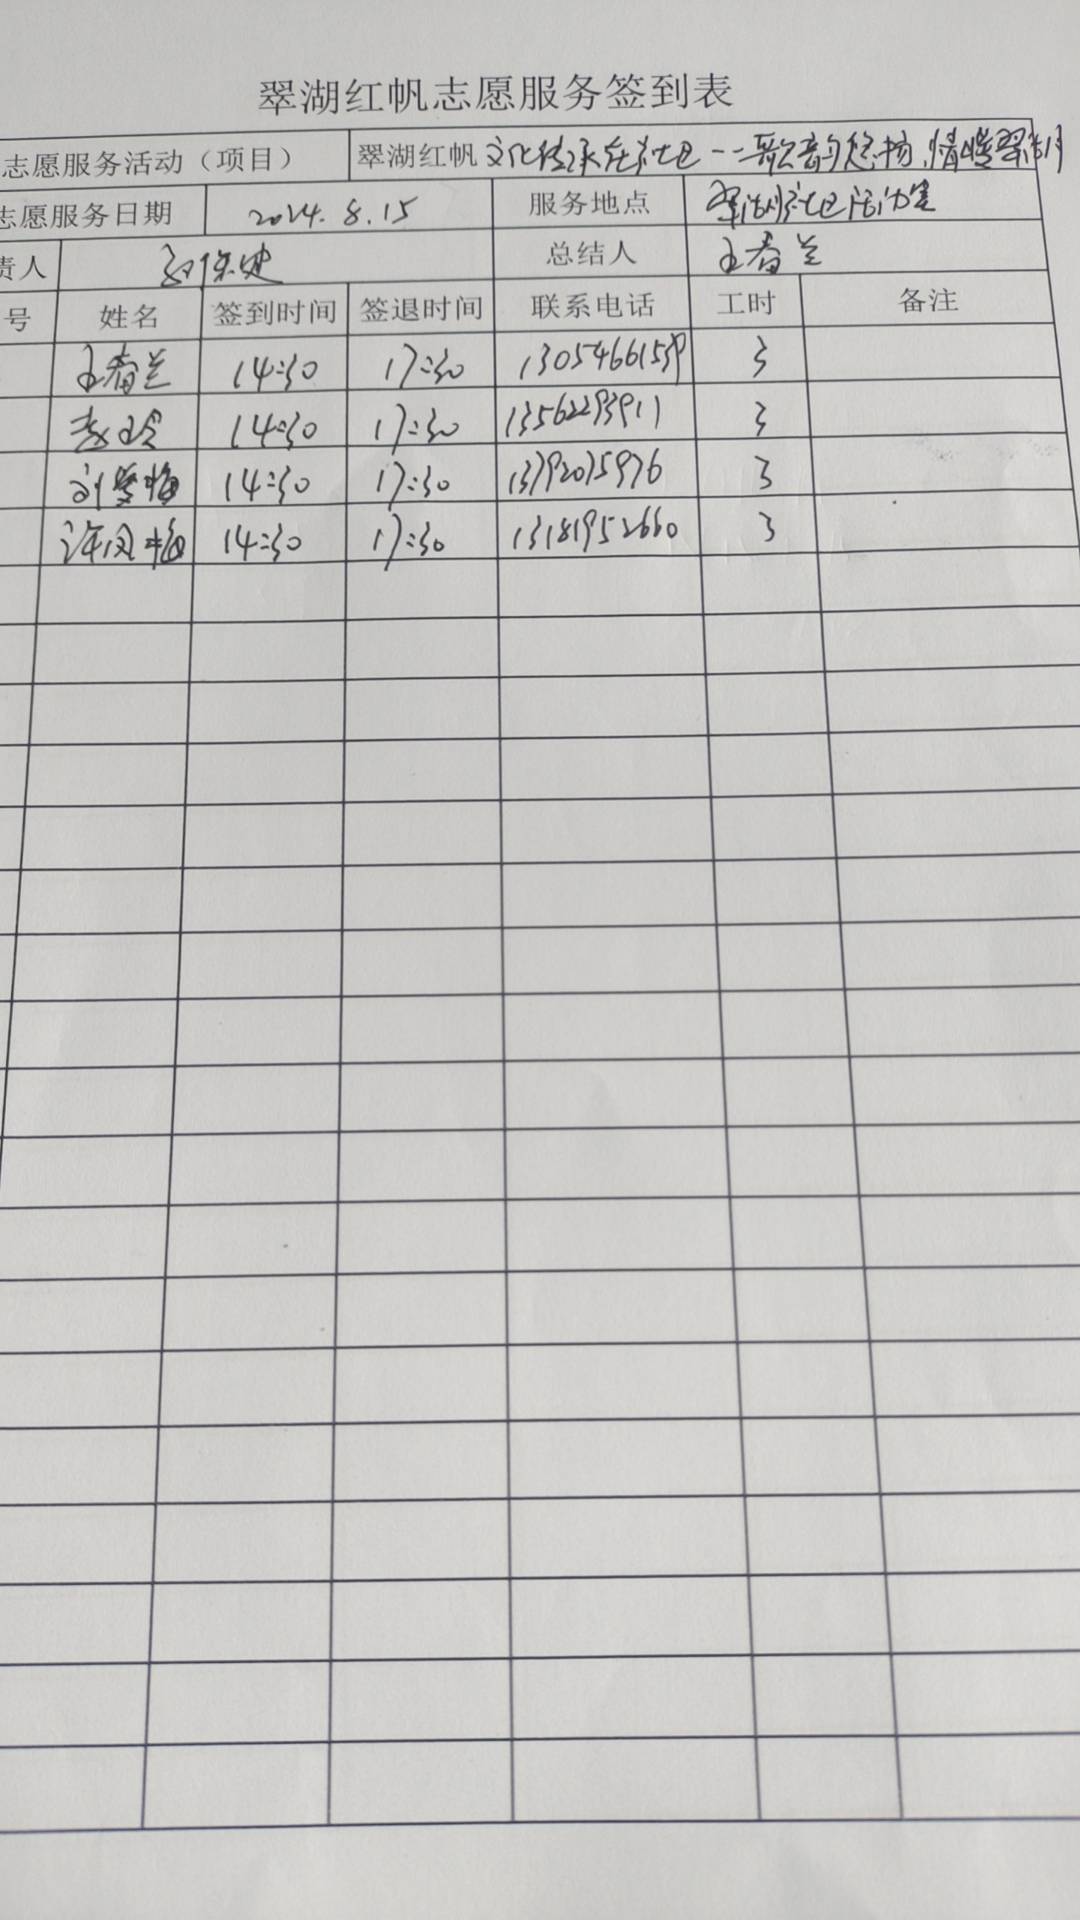 翠湖红帆志愿服务签到表
志愿服务活动（项目） 翠湖红帆 文化传承在社区--歌韵悠扬,情暖翠湖
志愿服务日期 2024.8.15 服务地点 翠湖社区活动室
责人 总结人 王春兰
号 姓名 签到时间 签退时间 联系电话 工时 备注
王春兰 14:30 17:30 3
李玉玲 14:30 17:30 13562293911 3
刘爱梅 14:30 17:30 13792075976 3
许凤梅 14:30 17:30 13181952660 3